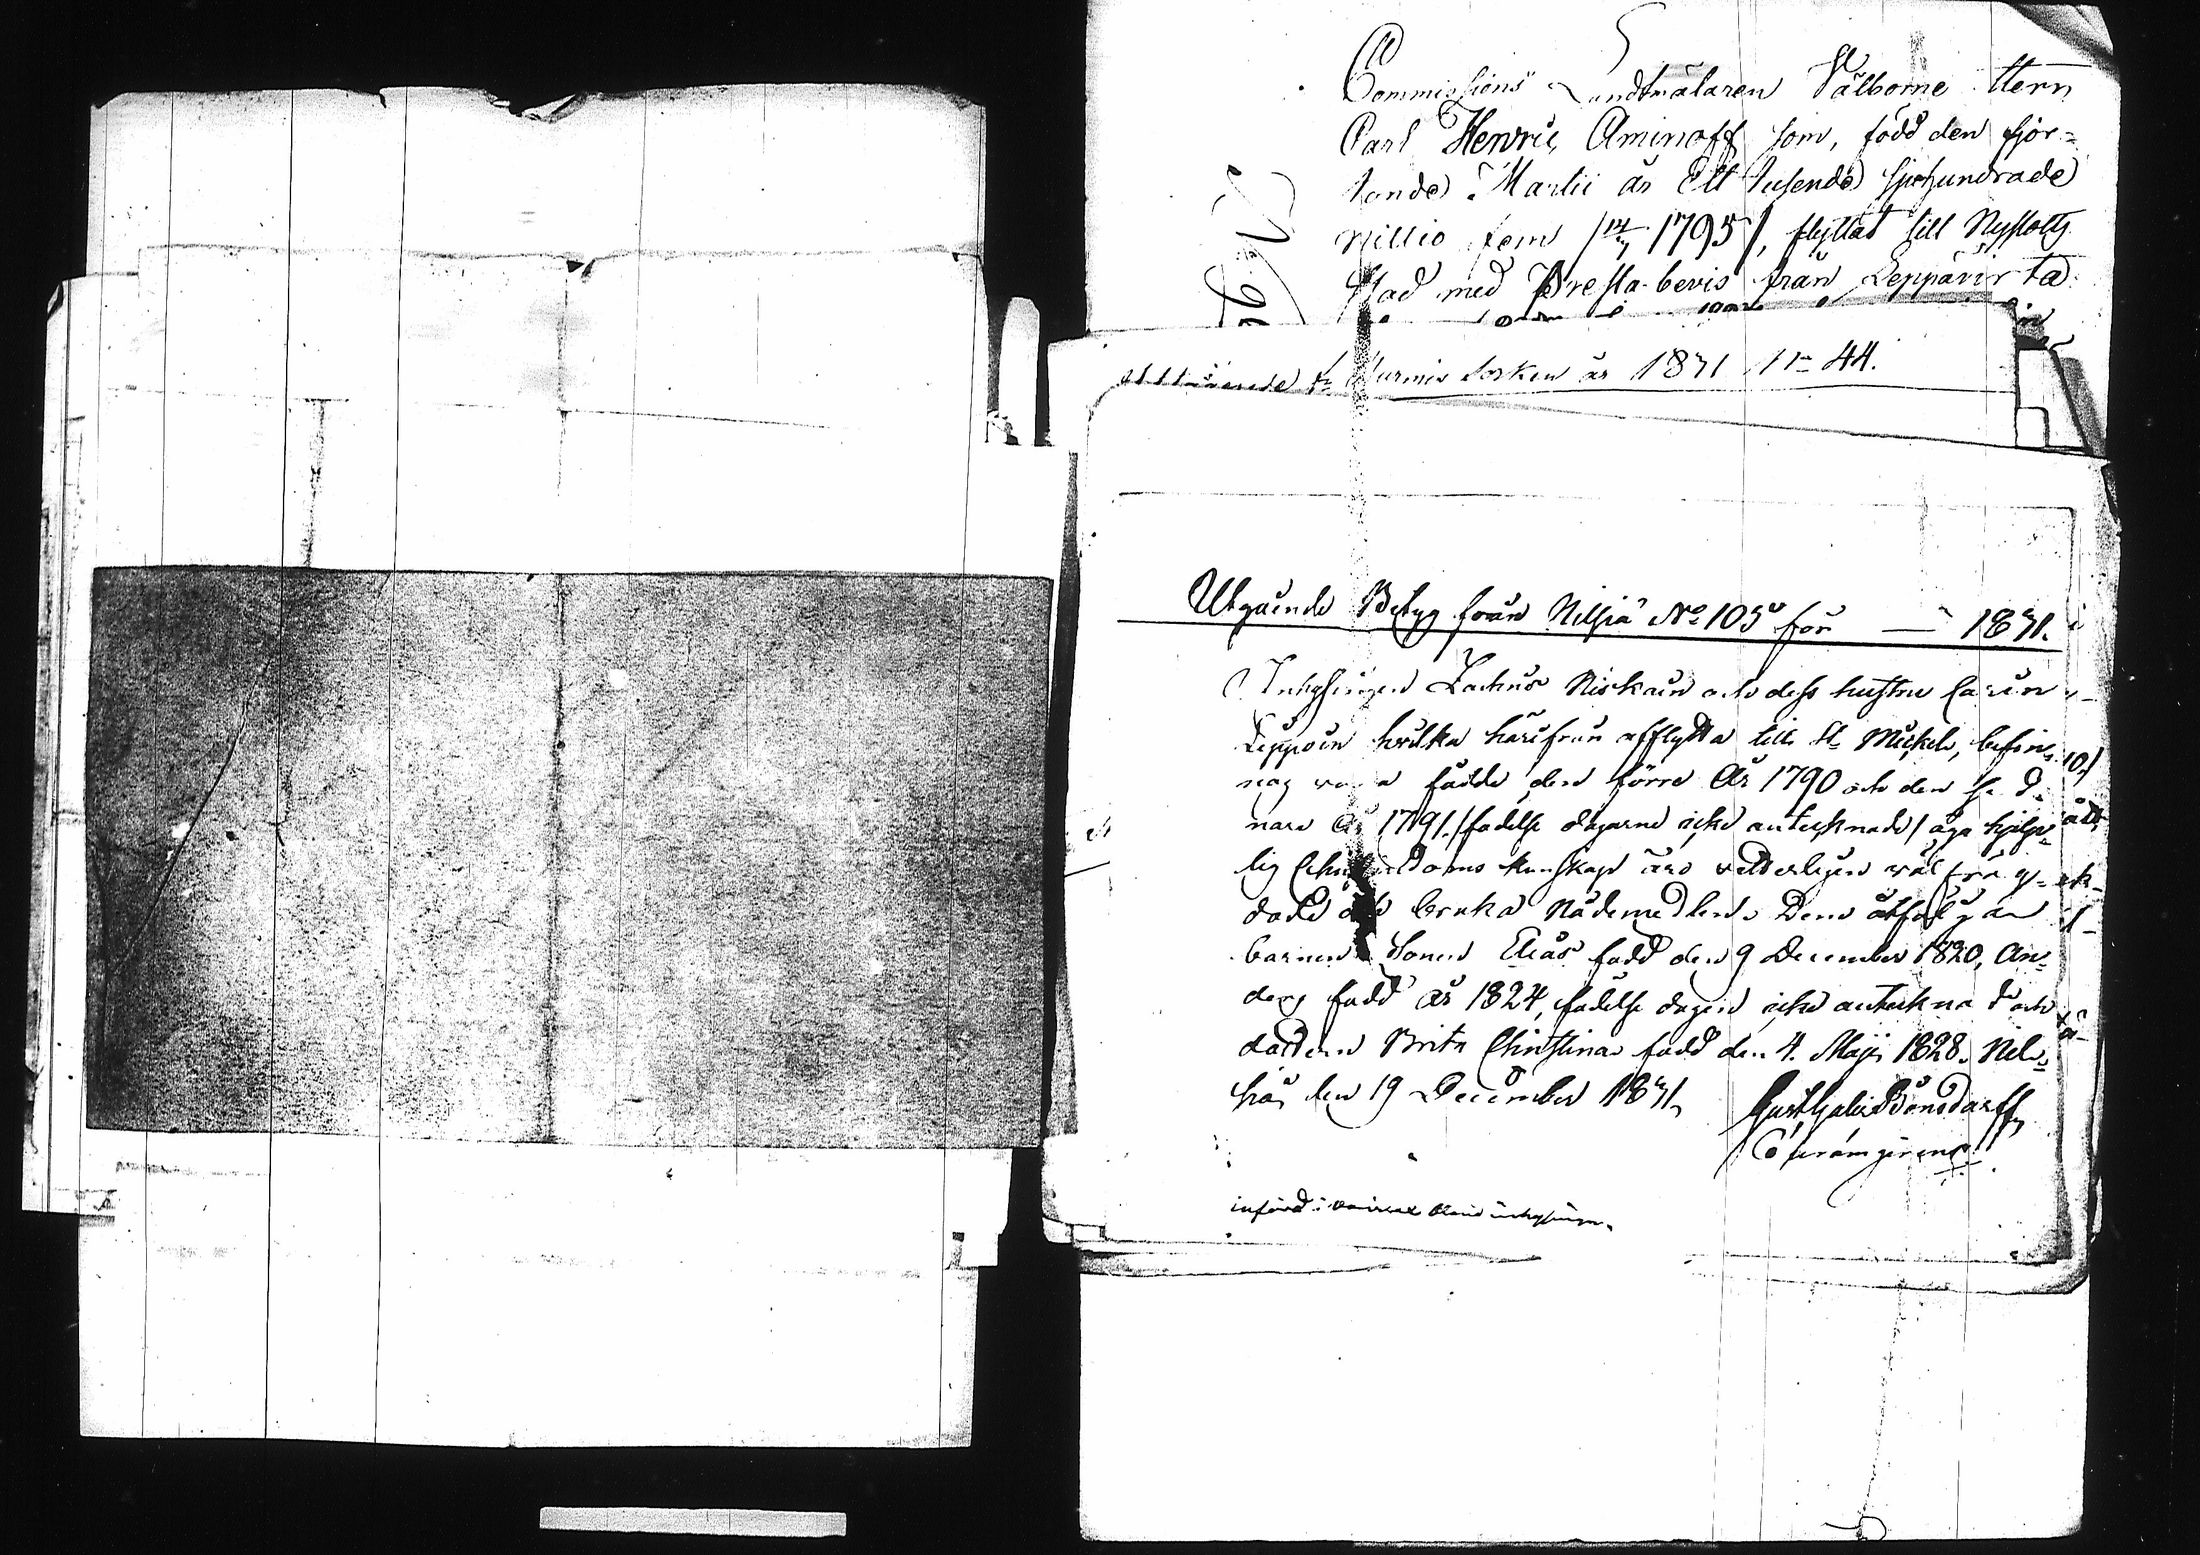 Commissions Landtmätaren Välborne Herr
Carl Henric Aminoff som, född den fjor=
tonde Martii år Ett tusende sjuhundrade
nittio fem /14/3 1795/, flyttat till Nyslotts
Stad med Presta-bevis från Leppävirta
Nurmis Socken år 1831 No 44.
Utgående Betyg från Nilsiä No 105 för — 1831.
Inhysingen Zachris Niskain och dess hustru Carin
Leppoin hvilka härifrån afflytta till St Michels, befin=
nas vara födde den förre År 1790 och den sed
nare År 1791 /födelse dagarne icke antecknade/ äga hjelp=
lig Christendoms kunskap äro vetterligen väl frä
och bruka Nådemedlen. Dem åtfölja
barnen Sonen Elias född den 9 December 1820, An=
ders född år 1824, födelse dagen icke antecknad och
dottern Brita Christina född den 4. Maji 1828. Nil=
siä den 19 December 1831.
Gust. Gabr. Bonsdorff
införd i bland inhysingar.